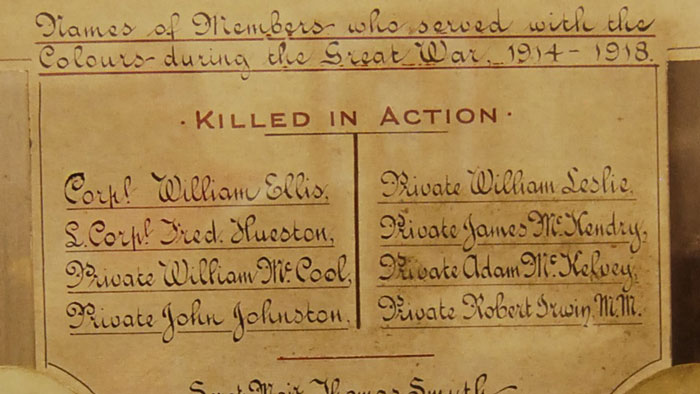 Names of Members who served with the
Colours during the Great War, 1914-1918.
· KILLED IN ACTION ·
Corpl William Ellis,
L. Corpl Fred. Hueston,
Private William Mc Cool,
Private John Johnston.
Private William Leslie,
Private James Mc Kendry,
Private Adam Mc Kelvey,
Private Robert Irwin, M.M.
Sergt Major Thomas Smyth